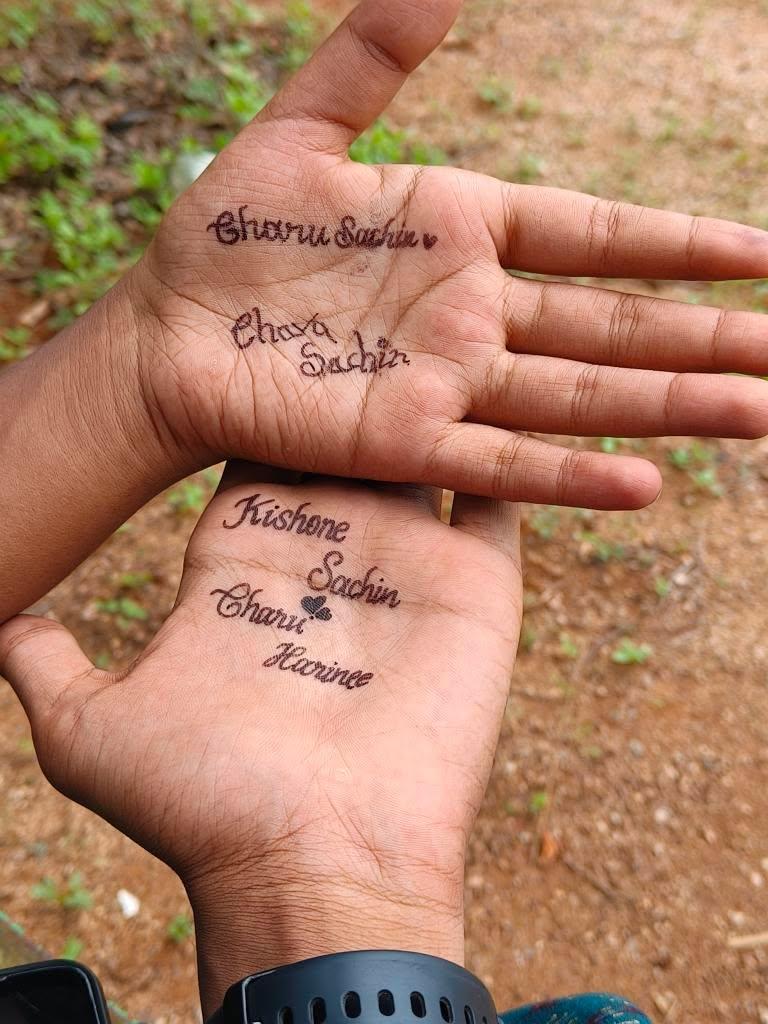 Charu Sachin
Chara
Sachin
Kishone
Sachin
Charu
Harinee